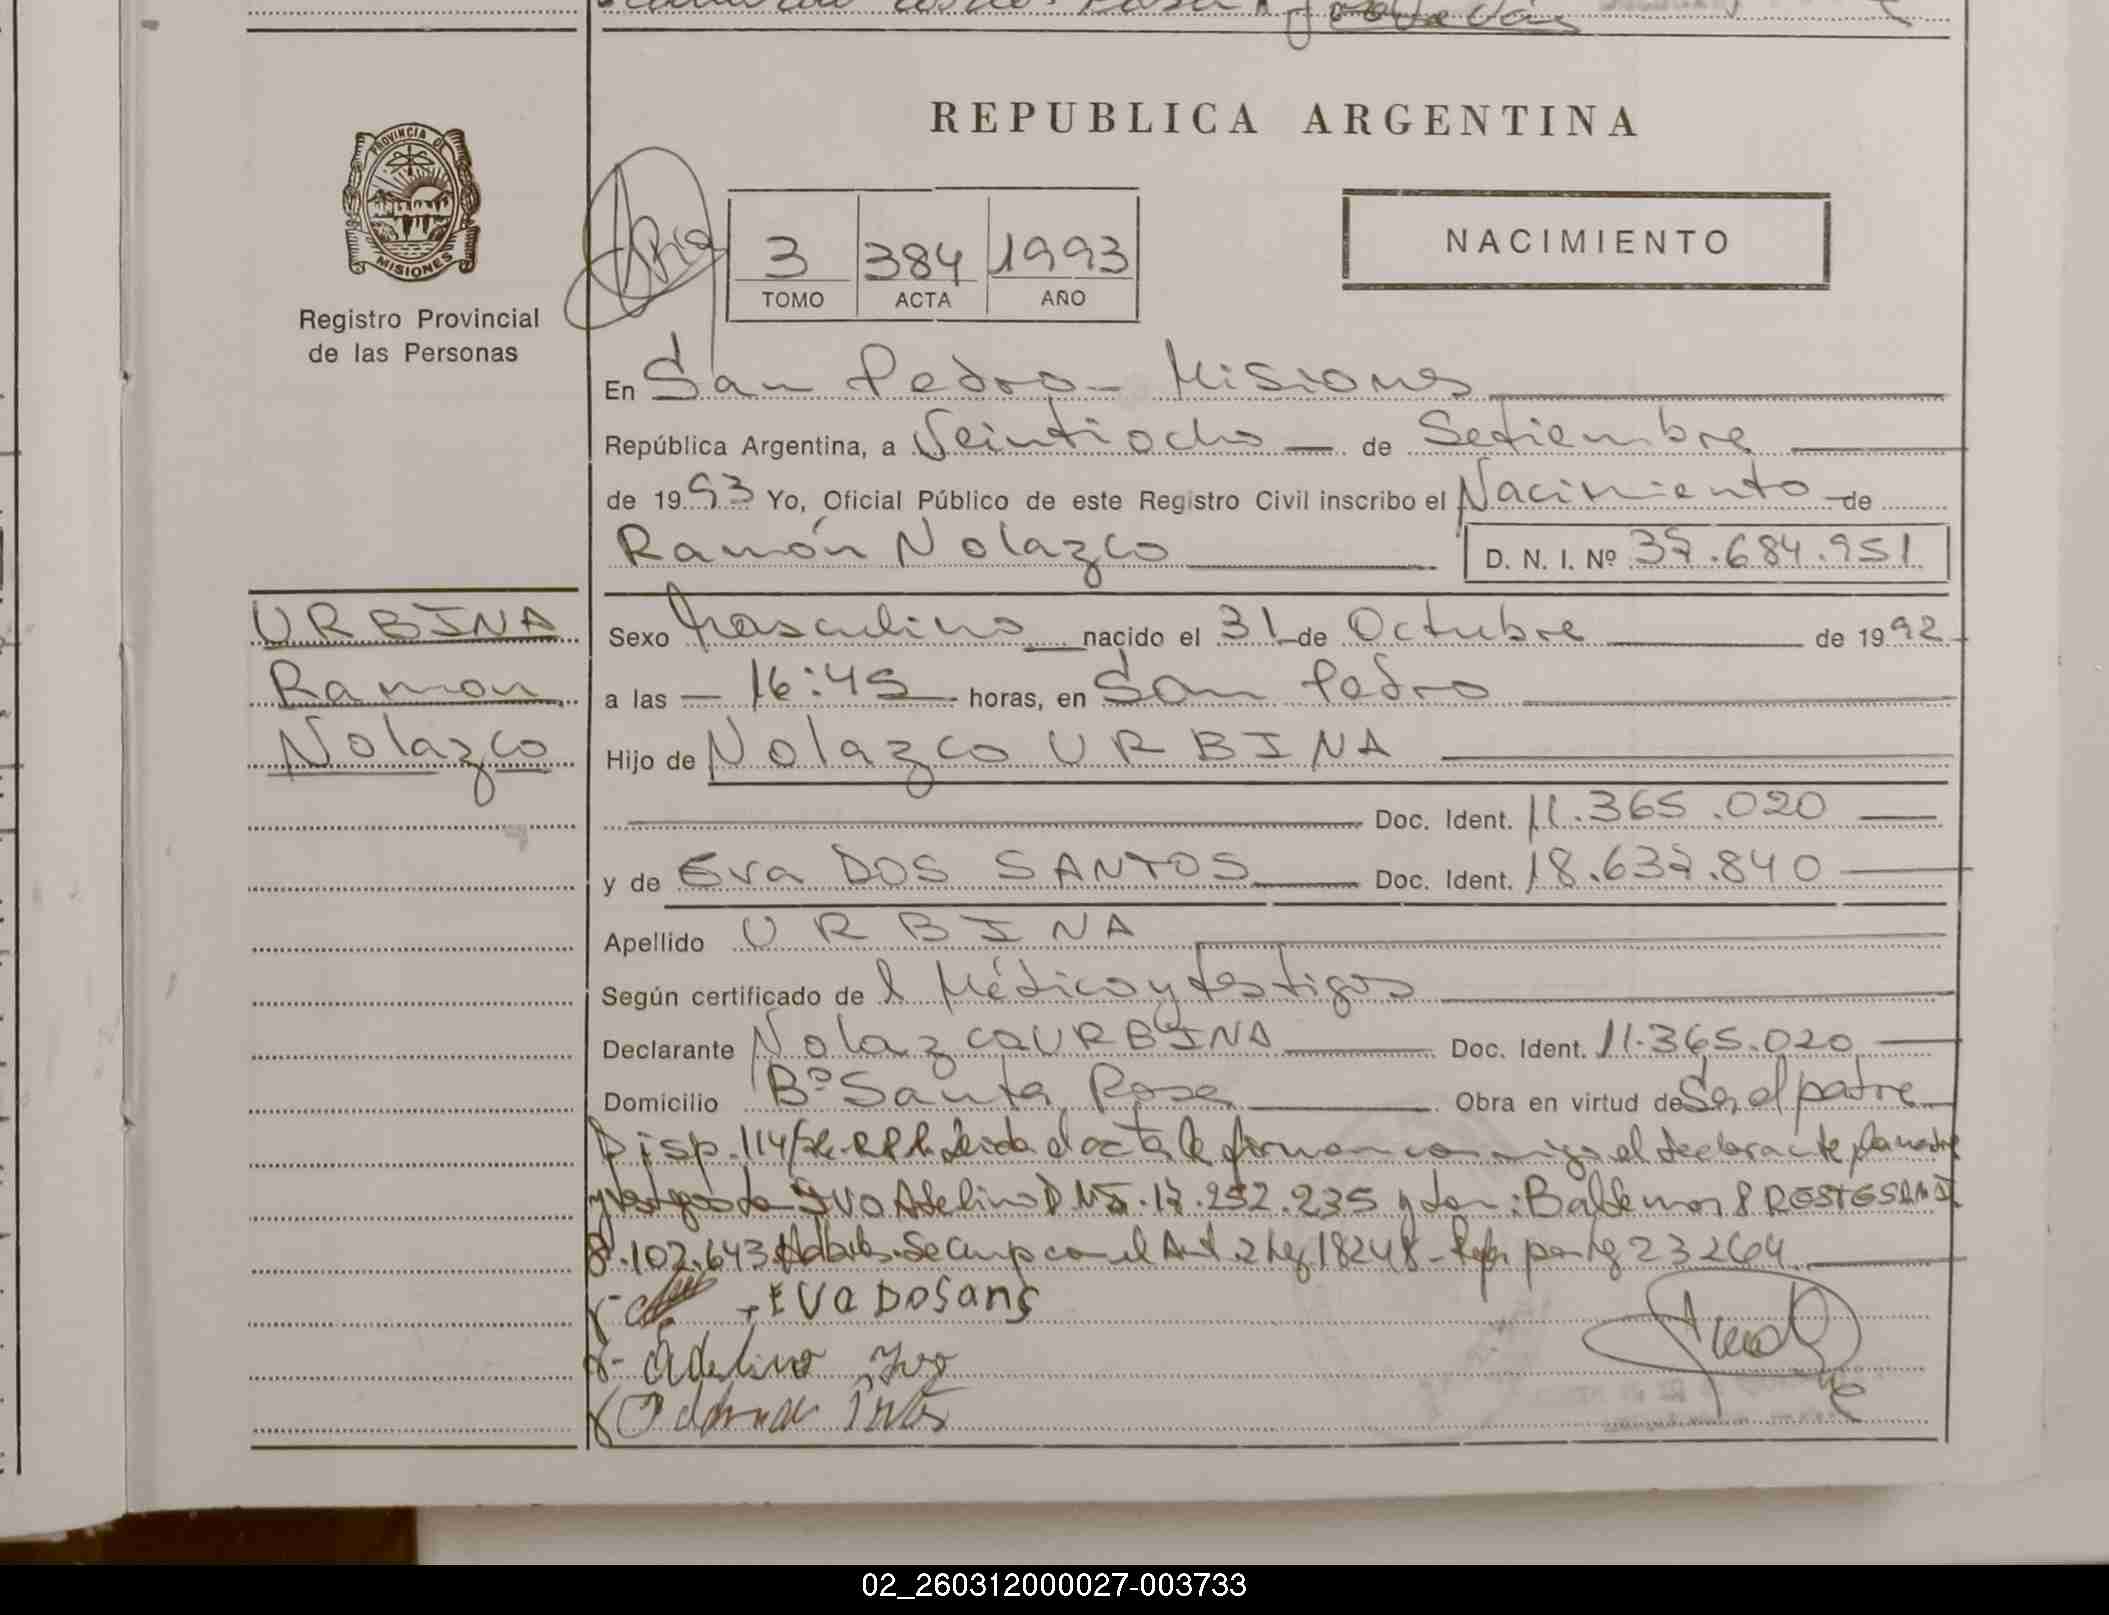 REPUBLICA ARGENTINA
PROVINCIA DE
MISIONES
Registro Provincial
de las Personas
3 384 1993
TOMO ACTA AÑO
NACIMIENTO
En San Pedro - Misiones
República Argentina, a Veintiocho de Setiembre
de 1993 Yo, Oficial Público de este Registro Civil inscribo el Nacimiento de
Ramón Nolazco D. N. I. Nº 37.684.951
URBINA
Ramon
Nolazco
Sexo Masculino nacido el 31 de Octubre de 1992
a las 16:45 horas, en San Pedro
Hijo de Nolazco URBINA
Doc. Ident. 11.365.020
y de Eva DOS SANTOS Doc. Ident. 18.637.840
Apellido URBINA
Según certificado de l Médico y testigos
Declarante Nolazco URBINA Doc. Ident. 11.365.020
Domicilio Bº Santa Rosa Obra en virtud de Ser el padre
Disp. 114/ Leida el acta la firman conmigo el declarante la madre
y testigos IVO Adelino 17.252.235 y don: Baldemar PRESTES
8.102.643 Se cump con el Art 2 Ley 18248 - por ley 23264
EVa DoSanS
Adelino Ivo
02_260312000027-003733